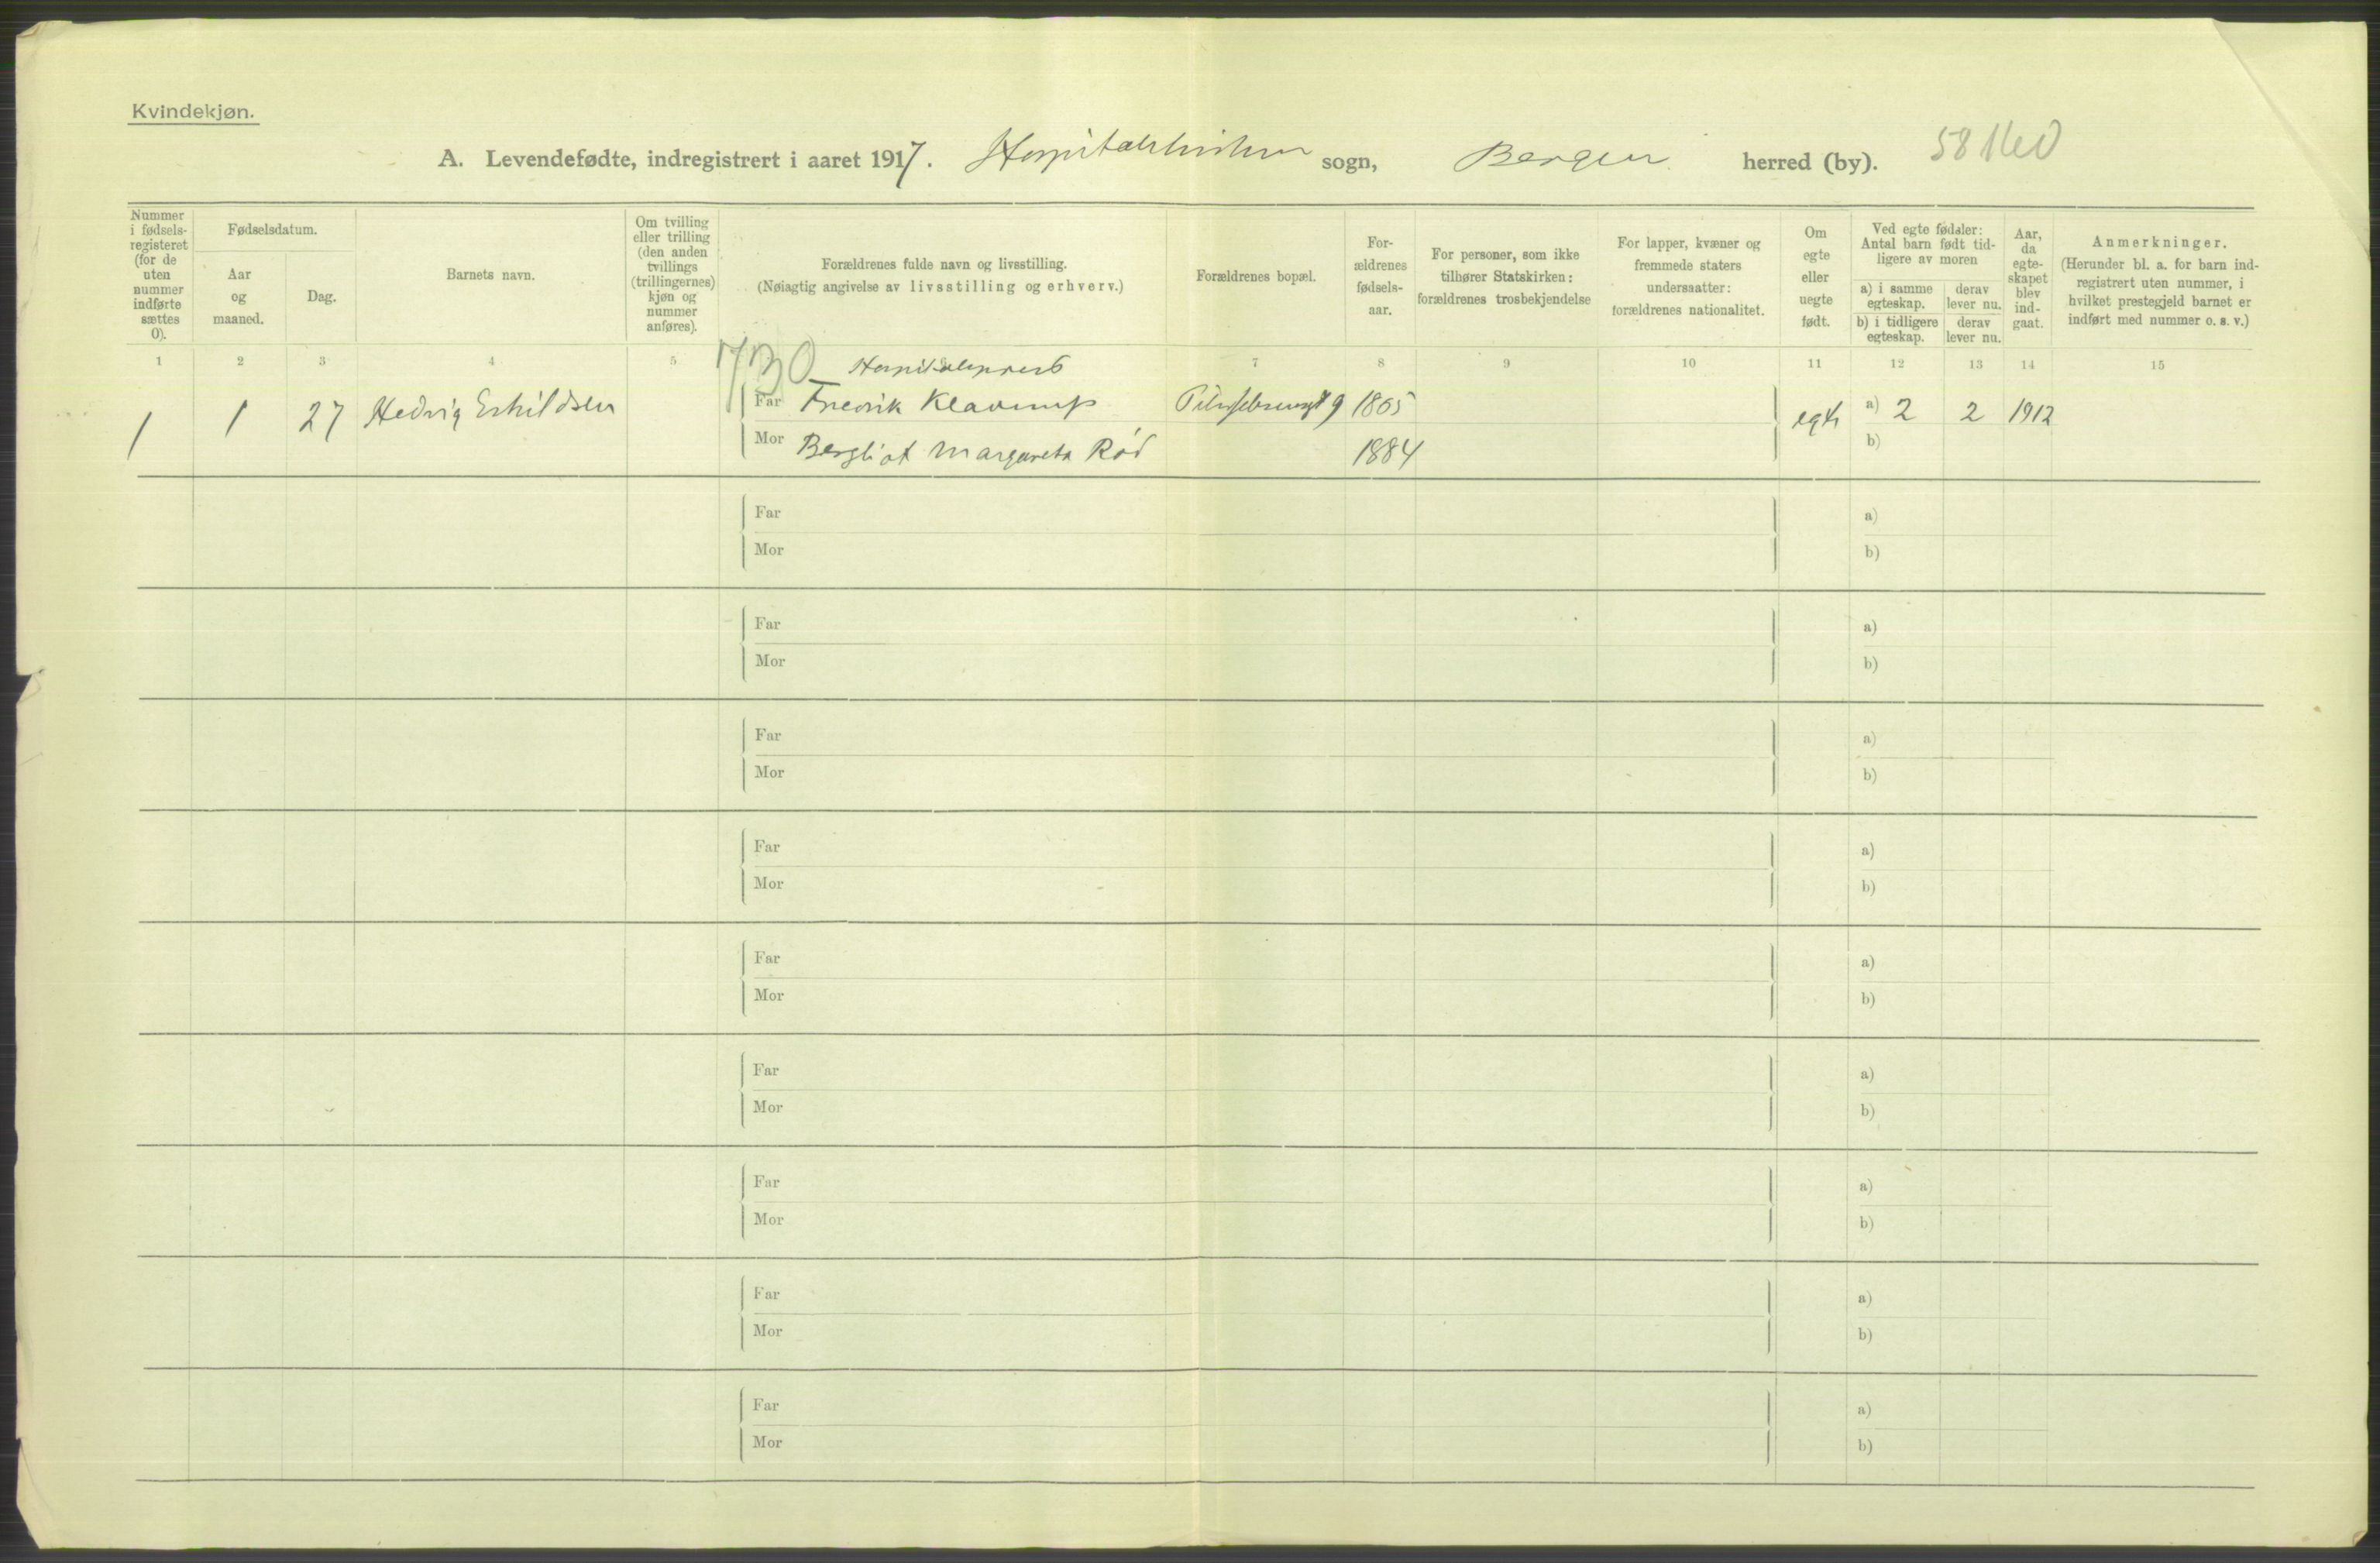 Kvindekjøn.
A. Levendefødte, indregistrert i aaret 1917. Hospitalskirken sogn, Bergen herred (by).
Nummer i fødsels-registeret (for de uten nummer indførte sættes 0).
Fødselsdatum.
Aar og maaned.
Dag.
Barnets navn.
Om tvilling eller trilling (den anden tvillings (trillingernes) kjøn og nummer anføres).
Forældrenes fulde navn og livsstilling.
(Nøiagtig angivelse av livsstilling og erhverv.)
Forældrenes bopæl.
For-ældrenes fødsels-aar.
For personer, som ikke tilhører Statskirken: forældrenes trosbekjendelse
For lapper, kvæner og fremmede staters undersaatter: forældrenes nationalitet.
Om egte eller uegte født.
Ved egte fødsler: Antal barn født tid-ligere av moren
a) i samme egteskap.
derav lever nu.
b) i tidligere egteskap.
derav lever nu.
Aar, da egte-skapet blev ind-gaat.
Anmerkninger.
(Herunder bl. a. for barn ind-registrert uten nummer, i hvilket prestegjeld barnet er indført med nummer o. s. v.)
1 2 3 4 5 7 8 9 10 11 12 13 14 15
Hospitalsprest
1 1 27 Hedvig Eskildsen Far Fredrik Klaverup 9 1865 egte a) 2 2 1912
Mor Bergliot Margareta Rød 1884 b)
Far a)
Mor b)
Far a)
Mor b)
Far a)
Mor b)
Far a)
Mor b)
Far a)
Mor b)
Far a)
Mor b)
Far a)
Mor b)
Far a)
Mor b)
Far a)
Mor b)